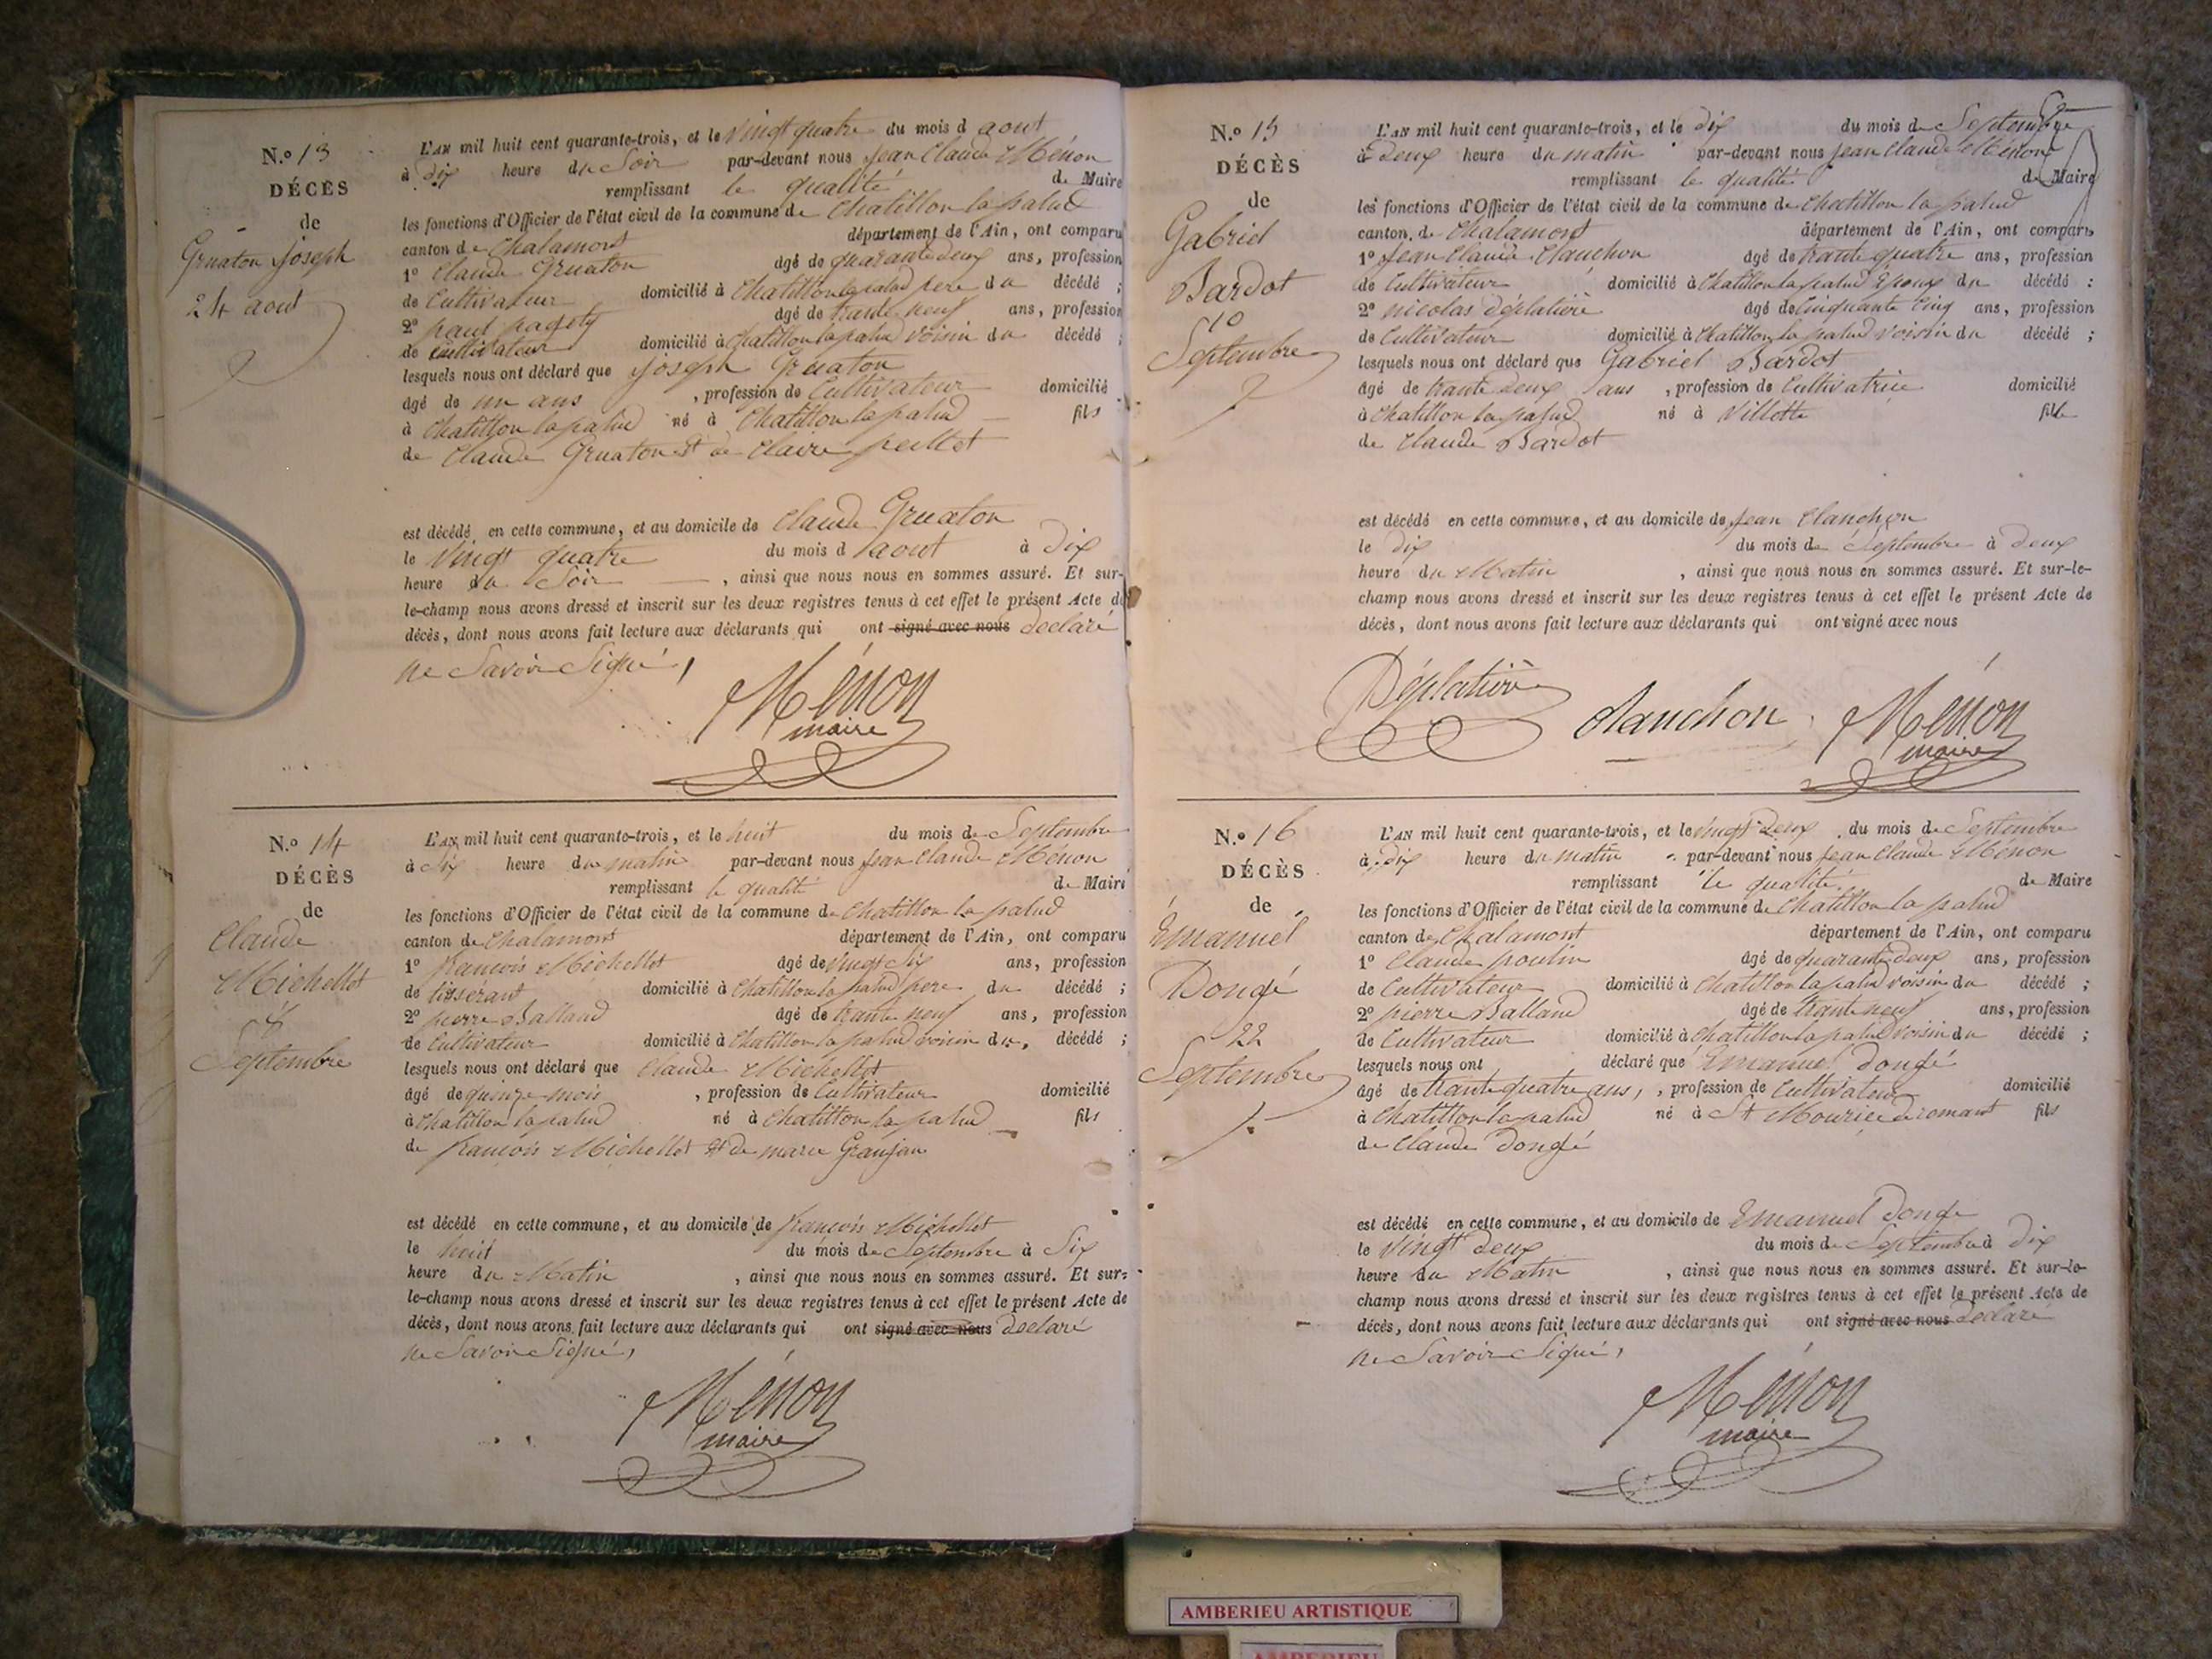 N.º 13
DÉCÈS
de
Gruaton Joseph
24 aout
L'AN mil huit cent quarante-trois, et le vingt quatre du mois d aout
à dix heure du Soir par-devant nous Jean Claude Ménon
remplissant le qualité de Maire
les fonctions d'Officier de l'état civil de la commune de Chatillon la palud
canton de Chalamont département de l'Ain, ont comparu
1º Claude Gruaton âgé de quarante deux ans, profession
de Cultivateur domicilié à Chatillon la palud pere du décédé ;
2º paul âgé de trante neuf ans, profession
de cultivateur domicilié à Chatillon la palud voisin du décédé ;
lesquels nous ont déclaré que Joseph Gruaton
âgé de un ans , profession de Cultivateur domicilié
à Chatillon la palud né à Chatillon la palud fils
de Claude Gruaton et de Claire peillet
est décédé en cette commune, et au domicile de Claude Gruaton
le Vingt quatre du mois d aout à dix
heure du Soir , ainsi que nous nous en sommes assuré. Et sur-
le-champ nous avons dressé et inscrit sur les deux registres tenus à cet effet le présent Acte de
décès, dont nous avons fait lecture aux déclarants qui ont signé avec nous declaré
ne Savoir Signé,
Ménon
maire
N.º 14
DÉCÈS
de
Claude
Michellet
8
Septembre
L'AN mil huit cent quarante-trois, et le huit du mois de Septembre
à Six heure du matin par-devant nous Jean Claude Ménon
remplissant le qualité de Maire
les fonctions d'Officier de l'état civil de la commune de Chatillon la palud
canton de Chalamont département de l'Ain, ont comparu
1º francois Michellet âgé de vingt Six ans, profession
de tissérant domicilié à Chatillon la palud pere du décédé ;
2º pierre Balland âgé de trante neuf ans, profession
de Cultivateur domicilié à Chatillon la palud voisin du décédé ;
lesquels nous ont déclaré que Claude Michellet
âgé de quinze mois , profession de Cultivateur domicilié
à Chatillon la palud né à Chatillon la palud fils
de francois Michellet et de marie Granjan
est décédé en cette commune, et au domicile de francois Michellet
le huit du mois de Septembre à Six
heure du Matin , ainsi que nous nous en sommes assuré. Et sur-
le-champ nous avons dressé et inscrit sur les deux registres tenus à cet effet le présent Acte de
décès, dont nous avons fait lecture aux déclarants qui ont signé avec nous declaré
ne Savoir Signé,
Ménon
maire
N.º 15
DÉCÈS
de
Gabriel
Bardot
10
Septembre
L'AN mil huit cent quarante-trois, et le dix du mois de Septembre
à Deux heure du matin par-devant nous Jean Claude Ménon
remplissant le qualité de Maire
les fonctions d'Officier de l'état civil de la commune de Chatillon la palud
canton de Chalamont département de l'Ain, ont comparu
1º Jean Claude Clanchon âgé de trante quatre ans, profession
de Cultivateur domicilié à Chatillon la palud Epoux du décédé :
2º nicolas Déplatière âgé de Cinquante Cinq ans, profession
de Cultivateur domicilié à Chatillon la palud voisin du décédé ;
lesquels nous ont déclaré que Gabriel Bardot
âgé de trante deux ans , profession de Cultivatrice domicilié
à Chatillon la palud né à Villette fille
de Claude Bardot
est décédé en cette commune, et au domicile de Jean Clanchon
le dix du mois de Septembre à deux
heure du Matin , ainsi que nous nous en sommes assuré. Et sur-le-
champ nous avons dressé et inscrit sur les deux registres tenus à cet effet le présent Acte de
décès, dont nous avons fait lecture aux déclarants qui ont signé avec nous
Déplatière Clanchon Ménon
maire
N.º 16
DÉCÈS
de
Emanuel
Dongé
22
Septembre
L'AN mil huit cent quarante-trois, et le vingt Deux du mois de Septembre
à dix heure du matin par-devant nous Jean Claude Ménon
remplissant le qualité de Maire
les fonctions d'Officier de l'état civil de la commune de Chatillon la palud
canton de Chalamont département de l'Ain, ont comparu
1º Claude poulin âgé de quarante deux ans, profession
de Cultivateur domicilié à Chatillon la palud voisin du décédé ;
2º pierre Balland âgé de trante neuf ans, profession
de Cultivateur domicilié à Chatillon la palud voisin du décédé ;
lesquels nous ont déclaré que Emanuel dongé
âgé de trante quatre ans, , profession de Cultivateur domicilié
à Chatillon la palud né à St Mourice de romant fils
de Claude dongé
est décédé en cette commune, et au domicile de Emanuel Donge
le Vingt deux du mois de Septembre à Dix
heure du Matin , ainsi que nous nous en sommes assuré. Et sur-le-
champ nous avons dressé et inscrit sur les deux registres tenus à cet effet le présent Acte de
décès, dont nous avons fait lecture aux déclarants qui ont signé avec nous declaré
ne Savoir Signé,
Ménon
maire
AMBERIEU ARTISTIQUE
AMBERIEU